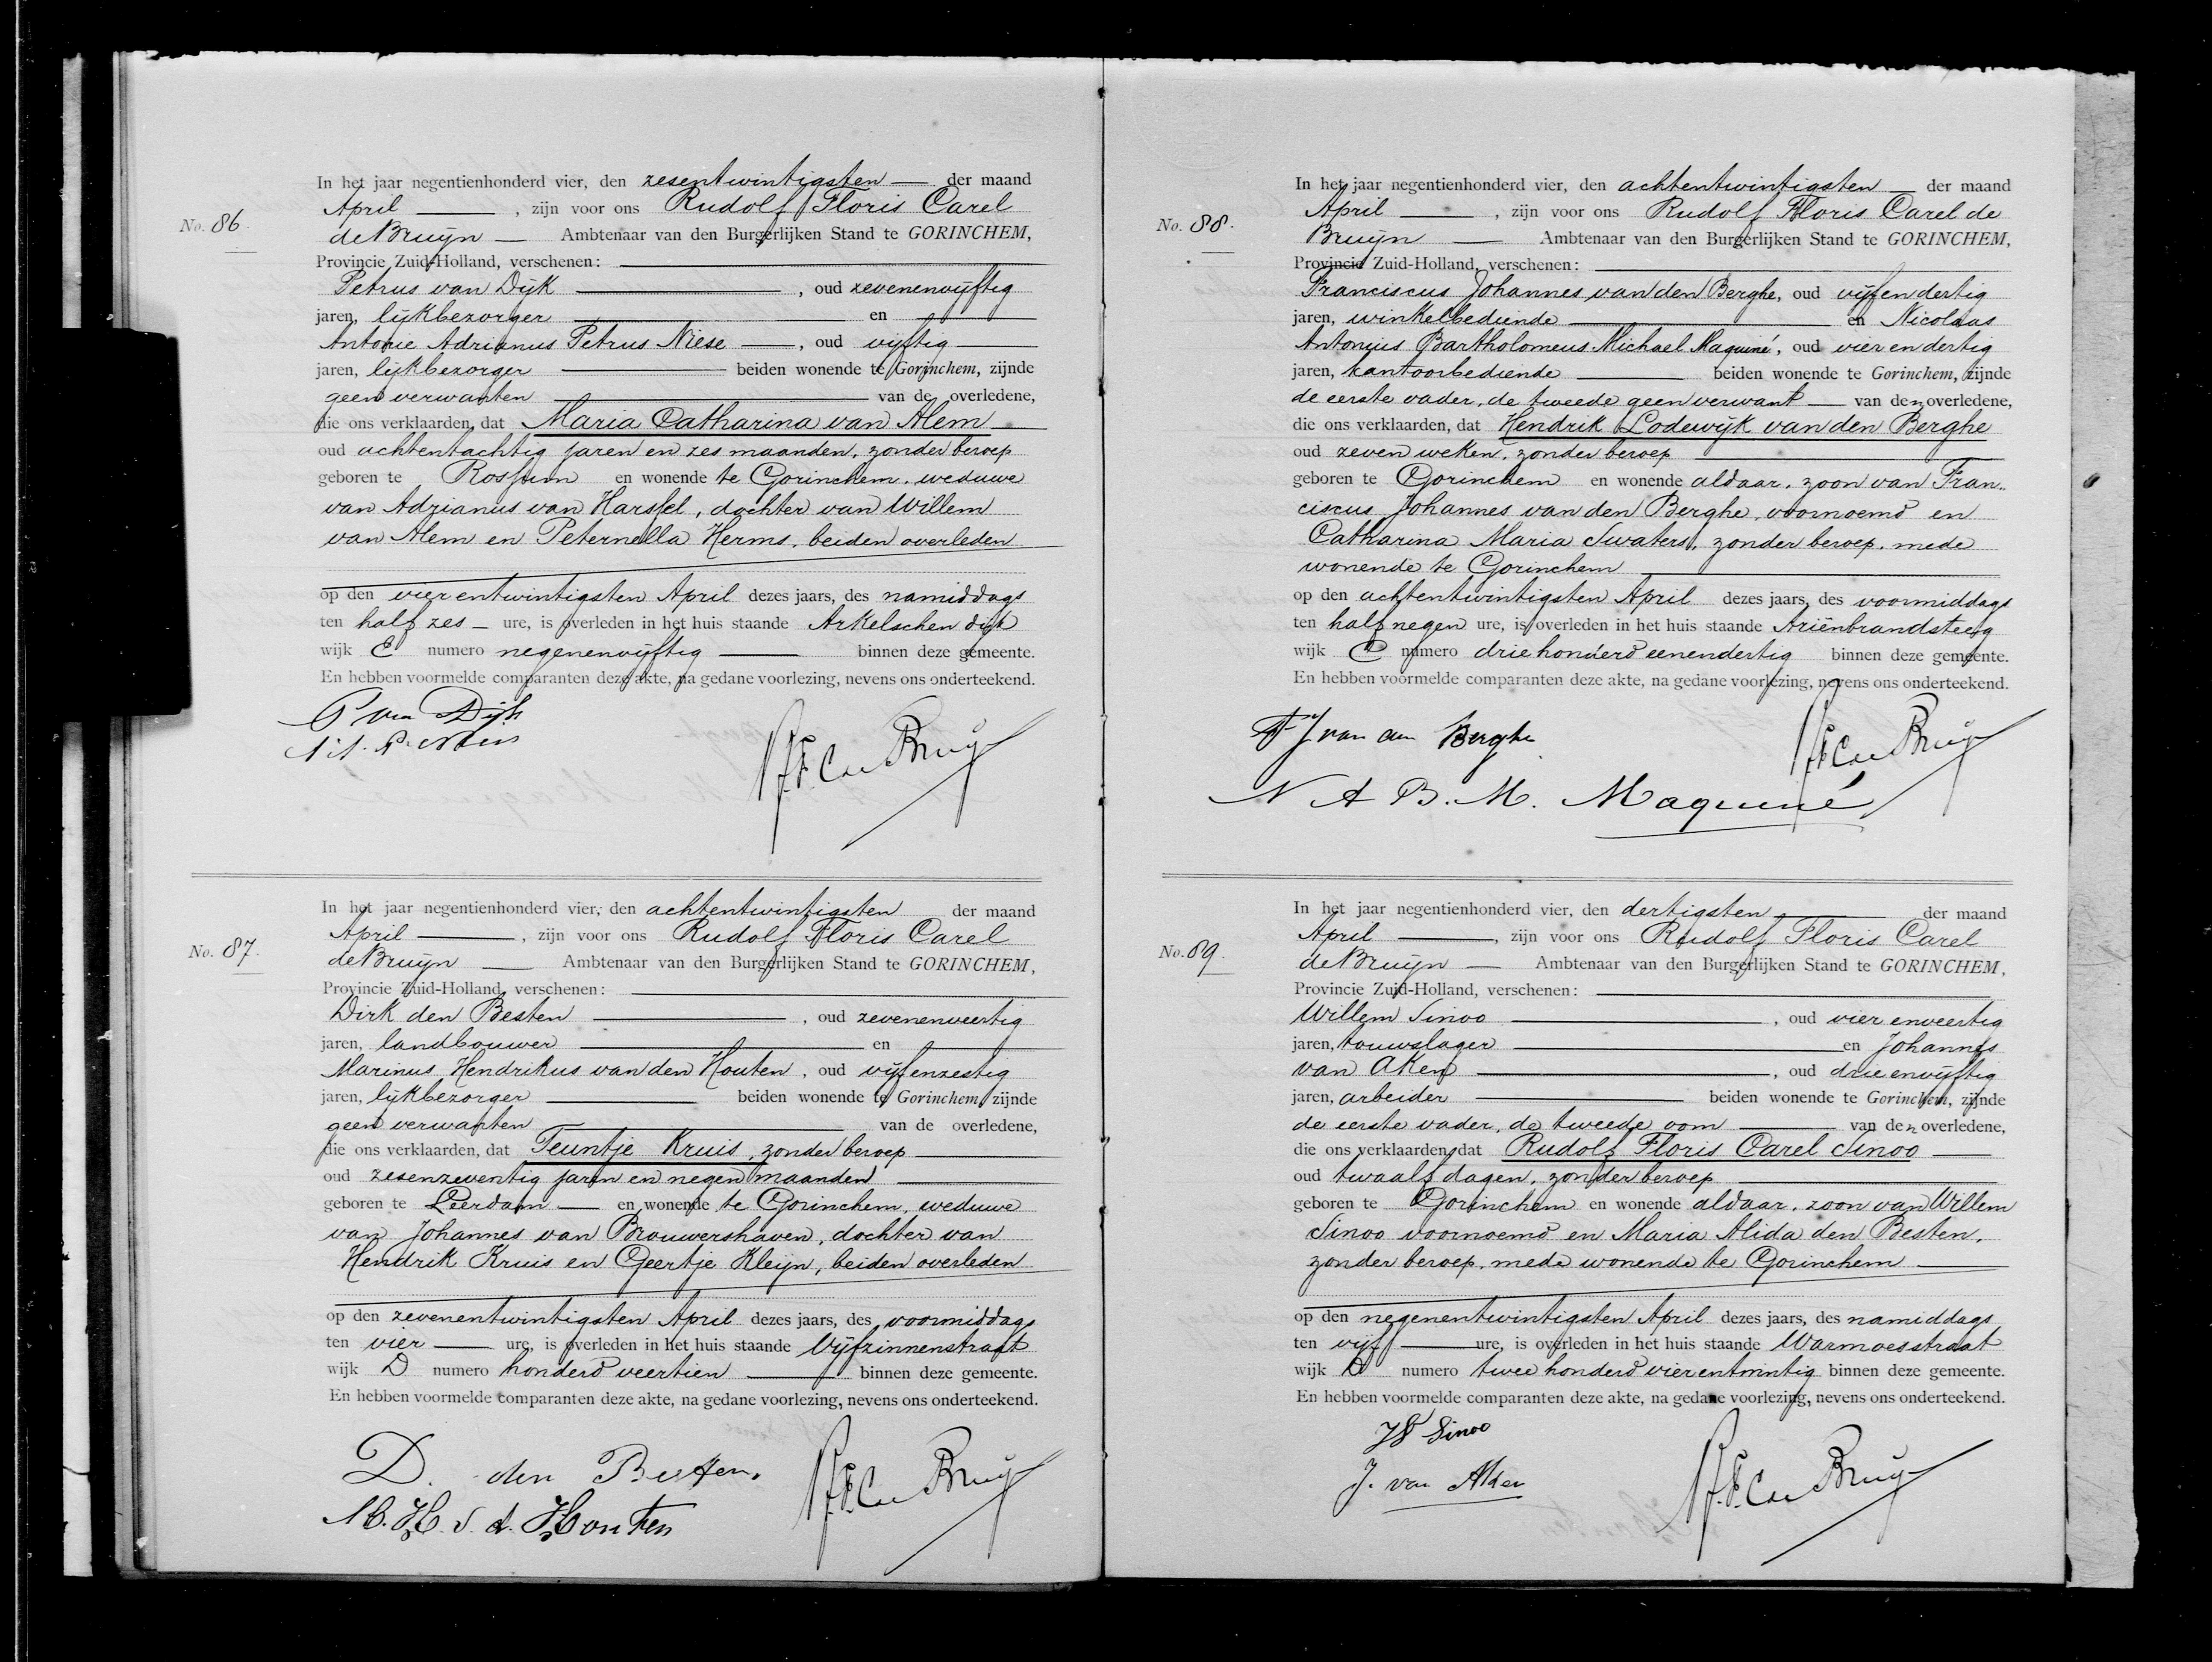 No. 86.
In het jaar negentienhonderd vier, den zesentwintigsten der maand
April, zijn voor ons Rudolf Floris Carel
de Bruijn Ambtenaar van den Burgerlijken Stand te GORINCHEM,
Provincie Zuid-Holland, verschenen:
Petrus van Dijk, oud zevenenvijftig
jaren, lijkbezorger en
Antonie Adrianus Petrus Niese, oud vijftig
jaren, lijkbezorger beiden wonende te Gorinchem, zijnde
geen verwanten van de overledene,
die ons verklaarden, dat Maria Catharina van Alem
oud achtentachtig jaren en zes maanden, zonder beroep
geboren te Rossum en wonende te Gorinchem, weduwe
van Adrianus van Harssel, dochter van Willem
van Alem en Peternella Herms, beiden overleden
op den vierentwintigsten April dezes jaars, des namiddags
ten half zes ure, is overleden in het huis staande Arkelschen dijk
wijk E numero negenenvijftig binnen deze gemeente.
En hebben voormelde comparanten deze akte, na gedane voorlezing, nevens ons onderteekend.
P van Dijk
A. A. P. Niese
R.F.C. de Bruijn
No. 87.
In het jaar negentienhonderd vier, den achtentwintigsten der maand
April, zijn voor ons Rudolf Floris Carel
de Bruijn Ambtenaar van den Burgerlijken Stand te GORINCHEM,
Provincie Zuid-Holland, verschenen:
Dirk den Besten, oud zevenenveertig
jaren, landbouwer en
Marinus Hendrikus van den Houten, oud vijfenzestig
jaren, lijkbezorger beiden wonende te Gorinchem, zijnde
geen verwanten van de overledene,
die ons verklaarden, dat Teuntje Kruis, zonder beroep
oud zesenzeventig jaren en negen maanden
geboren te Leerdam en wonende te Gorinchem, weduwe
van Johannes van Brouwershaven, dochter van
Hendrik Kruis en Geertje Kleijn, beiden overleden
op den zevenentwintigsten April dezes jaars, des voormiddags
ten vier ure, is overleden in het huis staande Vijfzinnenstraat
wijk D numero honderd veertien binnen deze gemeente.
En hebben voormelde comparanten deze akte, na gedane voorlezing, nevens ons onderteekend.
D. den Besten.
M. H. v. d. Houten
R.F.C. de Bruijn
No. 88.
In het jaar negentienhonderd vier, den achtentwintigsten der maand
April, zijn voor ons Rudolf Floris Carel de
Bruijn Ambtenaar van den Burgerlijken Stand te GORINCHEM,
Provincie Zuid-Holland, verschenen:
Franciscus Johannes van den Berghe, oud vijfendertig
jaren, winkelbediende en Nicolaas
Antonius Bartholomeus Michael Maquiné, oud vierendertig
jaren, kantoorbediende beiden wonende te Gorinchem, zijnde
de eerste vader, de tweede geen verwant van den overledene,
die ons verklaarden, dat Hendrik Lodewijk van den Berghe
oud zeven weken, zonder beroep
geboren te Gorinchem en wonende aldaar, zoon van Fran-
ciscus Johannes van den Berghe, voornoemd en
Catharina Maria Swaters, zonder beroep, mede
wonende te Gorinchem
op den achtentwintigsten April dezes jaars, des voormiddags
ten half negen ure, is overleden in het huis staande Ariënbrandsteeg
wijk C numero driehonderd eenendertig binnen deze gemeente.
En hebben voormelde comparanten deze akte, na gedane voorlezing, nevens ons onderteekend.
F J van den Berghe
R.F.C. de Bruijn
N A B. M. Maquiné
No. 89.
In het jaar negentienhonderd vier, den dertigsten der maand
April, zijn voor ons Rudolf Floris Carel
de Bruijn Ambtenaar van den Burgerlijken Stand te GORINCHEM,
Provincie Zuid-Holland, verschenen:
Willem Sinoo, oud vierenveertig
jaren, touwslager en Johannes
van Aken, oud drieenvijftig
jaren, arbeider beiden wonende te Gorinchem, zijnde
de eerste vader, de tweede oom van den overledene,
die ons verklaarden, dat Rudolf Floris Carel Sinoo
oud twaalf dagen, zonder beroep
geboren te Gorinchem en wonende aldaar, zoon van Willem
Sinoo voornoemd en Maria Alida den Besten,
zonder beroep, mede wonende te Gorinchem
op den negenentwintigsten April dezes jaars, des namiddags
ten vijf ure, is overleden in het huis staande Warmoesstraat
wijk D numero twee honderd vierentwintig binnen deze gemeente.
En hebben voormelde comparanten deze akte, na gedane voorlezing, nevens ons onderteekend.
W Sinoo
J. van Aken
R.F.C. de Bruijn